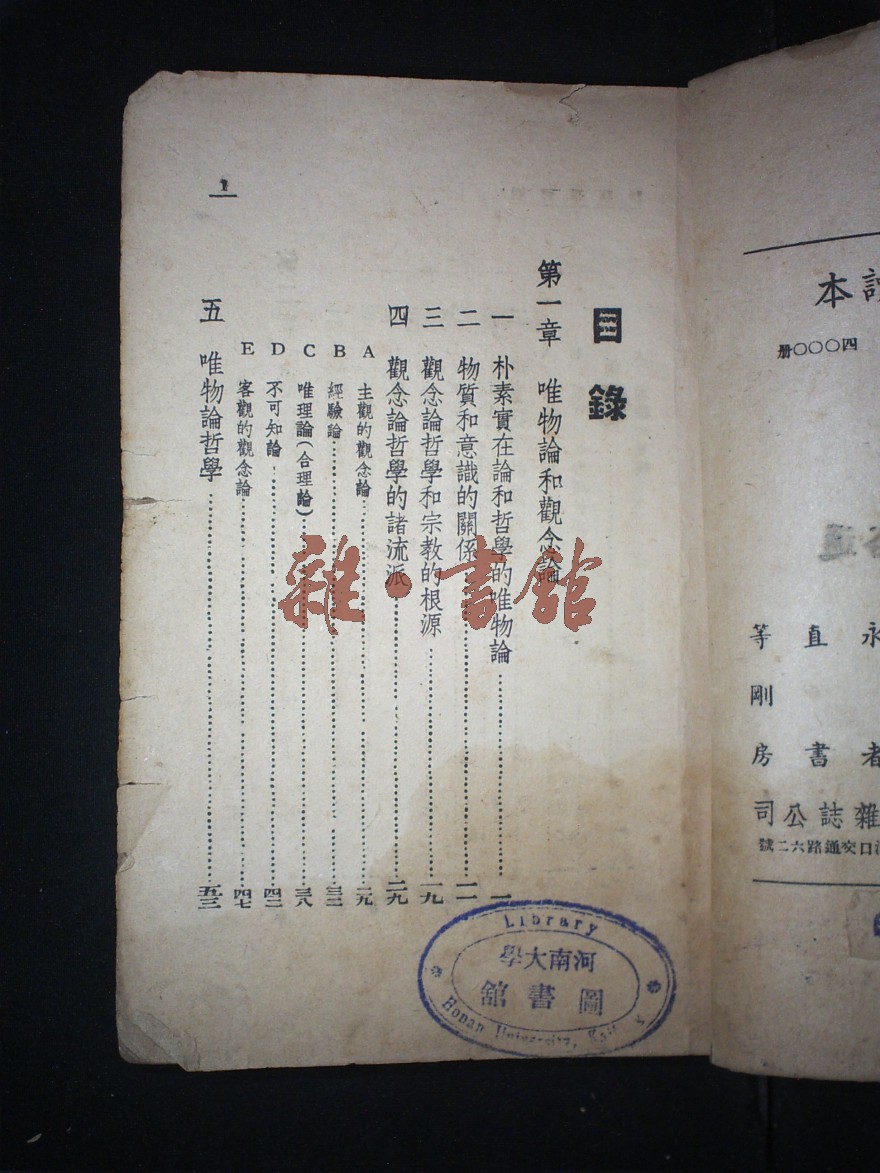 本
四〇〇〇册
永直等
剛
者書房
雜誌公司
口交通路六二號
目錄
第一章 唯物論和觀念論
一 朴素實在論和哲學的唯物論……一
二 物質和意識的關係……一一
三 觀念論哲學和宗教的根源……一九
四 觀念論哲學的諸流派……二九
A 主觀的觀念論……二九
B 經驗論……三二
C 唯理論(合理論)……三八
D 不可知論……四二
E 客觀的觀念論……四七
五 唯物論哲學……五三
1
雜·書館
Library
河南大學
圖書館
Honan University,